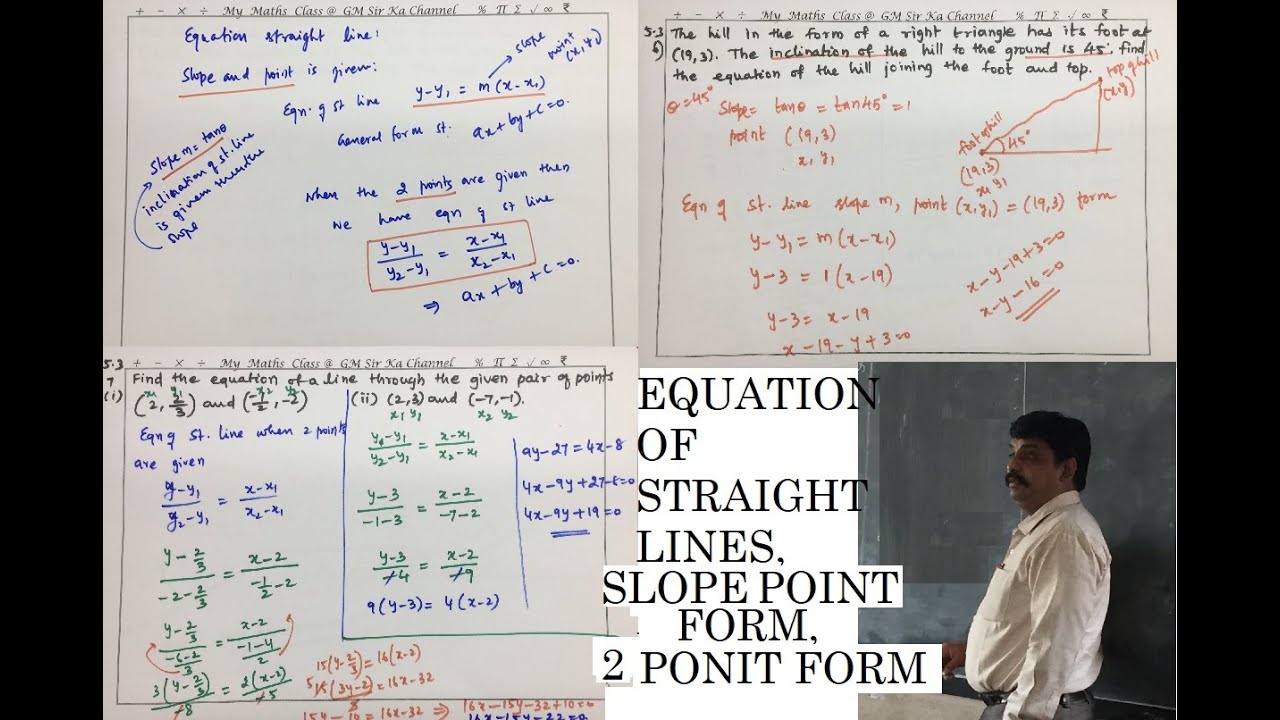 + − × ÷ My Maths Class @ GM Sir Ka Channel % Π Σ √ ∞ ₹
Equation straight line:
Slope and point is given:
slope
point
(x₁,y₁)
Eqn. of st line y−y₁ = m(x−x₁)
General form st. ax+by+c=0.
Slope m = tanθ
inclination of st. line
is given then the
slope
When the 2 points are given then
we have eqn of st line
(y−y₁)/(y₂−y₁) = (x−x₁)/(x₂−x₁)
⇒ ax+by+c=0.
+ − × ÷ My Maths Class @ GM Sir Ka Channel % Π Σ √ ∞ ₹
5.3 The hill in the form of a right triangle has its foot at
6) (19,3). The inclination of the hill to the ground is 45°, find
the equation of the hill joining the foot and top.
θ=45°
Slope = tanθ = tan45° = 1
point (19,3)
x₁ y₁
top of hill
(x,y)
foot of hill
45°
(19,3)
x₁ y₁
Eqn of st. line slope m, point (x₁,y₁) = (19,3) form
y−y₁ = m(x−x₁)
y−3 = 1(x−19)
y−3 = x−19
x−19−y+3=0
x−y−19+3=0
x−y−16=0
5.3 + − × ÷ My Maths Class @ GM Sir Ka Channel % Π Σ √ ∞ ₹
7 Find the equation of a line through the given pair of points
x₁ y₁ x₂ y₂
(i) (2, 2/3) and (−1/2, −2)
Eqn of st. line when 2 points
are given
(y−y₁)/(y₂−y₁) = (x−x₁)/(x₂−x₁)
(y−2/3)/(−2−2/3) = (x−2)/(−1/2−2)
(y−2/3)/((−6−2)/3) = (x−2)/((−1−4)/2)
3(y−2/3)/−8 = 2(x−2)/−5
15(y−2/3) = 16(x−2)
(3y−2)/3 = 16x−32
15y−10 = 16x−32 ⇒ 16x−15y−32+10=0
16x−15y−22=0
(ii) (2,3) and (−7,−1).
x₁ y₁ x₂ y₂
(y−y₁)/(y₂−y₁) = (x−x₁)/(x₂−x₁)
(y−3)/(−1−3) = (x−2)/(−7−2)
(y−3)/−4 = (x−2)/−9
9(y−3) = 4(x−2)
9y−27 = 4x−8
4x−9y+27−8=0
4x−9y+19=0
EQUATION
OF
STRAIGHT
LINES,
SLOPE POINT
FORM,
2 PONIT FORM